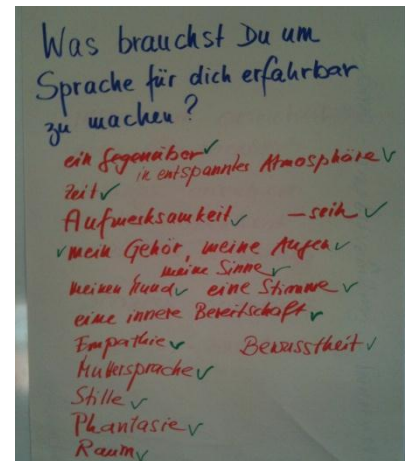 Was brauchst Du um
Sprache für dich erfahrbar
zu machen?
ein Gegenüber ✓
in entspannter Atmosphäre ✓
Zeit ✓
Aufmerksamkeit ✓ – sein ✓
✓ mein Gehör, meine Augen ✓
meine Sinne ✓
meinen Mund ✓ eine Stimme ✓
eine innere Bereitschaft ✓
Empathie ✓ Bewusstheit ✓
Muttersprache ✓
Stille ✓
Phantasie ✓
Raum ✓